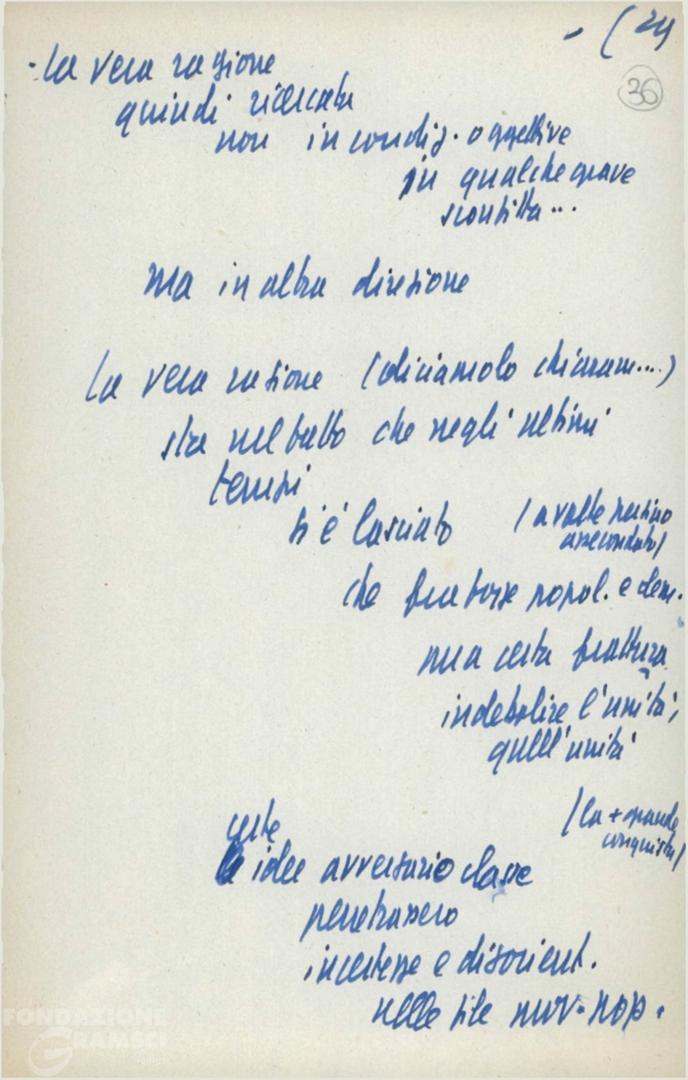 - (24
36
- La vera ragione
quindi ricercata
non in condiz. oggettive
in qualche grave
sconfitta...
ma in altra direzione
La vera ragione (diciamolo chiaram....)
sta nel fatto che negli ultimi
tempi
si è lasciato (a volte persino
assecondato)
che fra forze popol. e dem.
una certa frattura
indebolire l'unità,
quell'unità
(la + grande
conquista)
certe
idee avversario classe
penetrassero
incertezze e disorient.
nelle file mov. pop.
FONDAZIONE
GRAMSCI